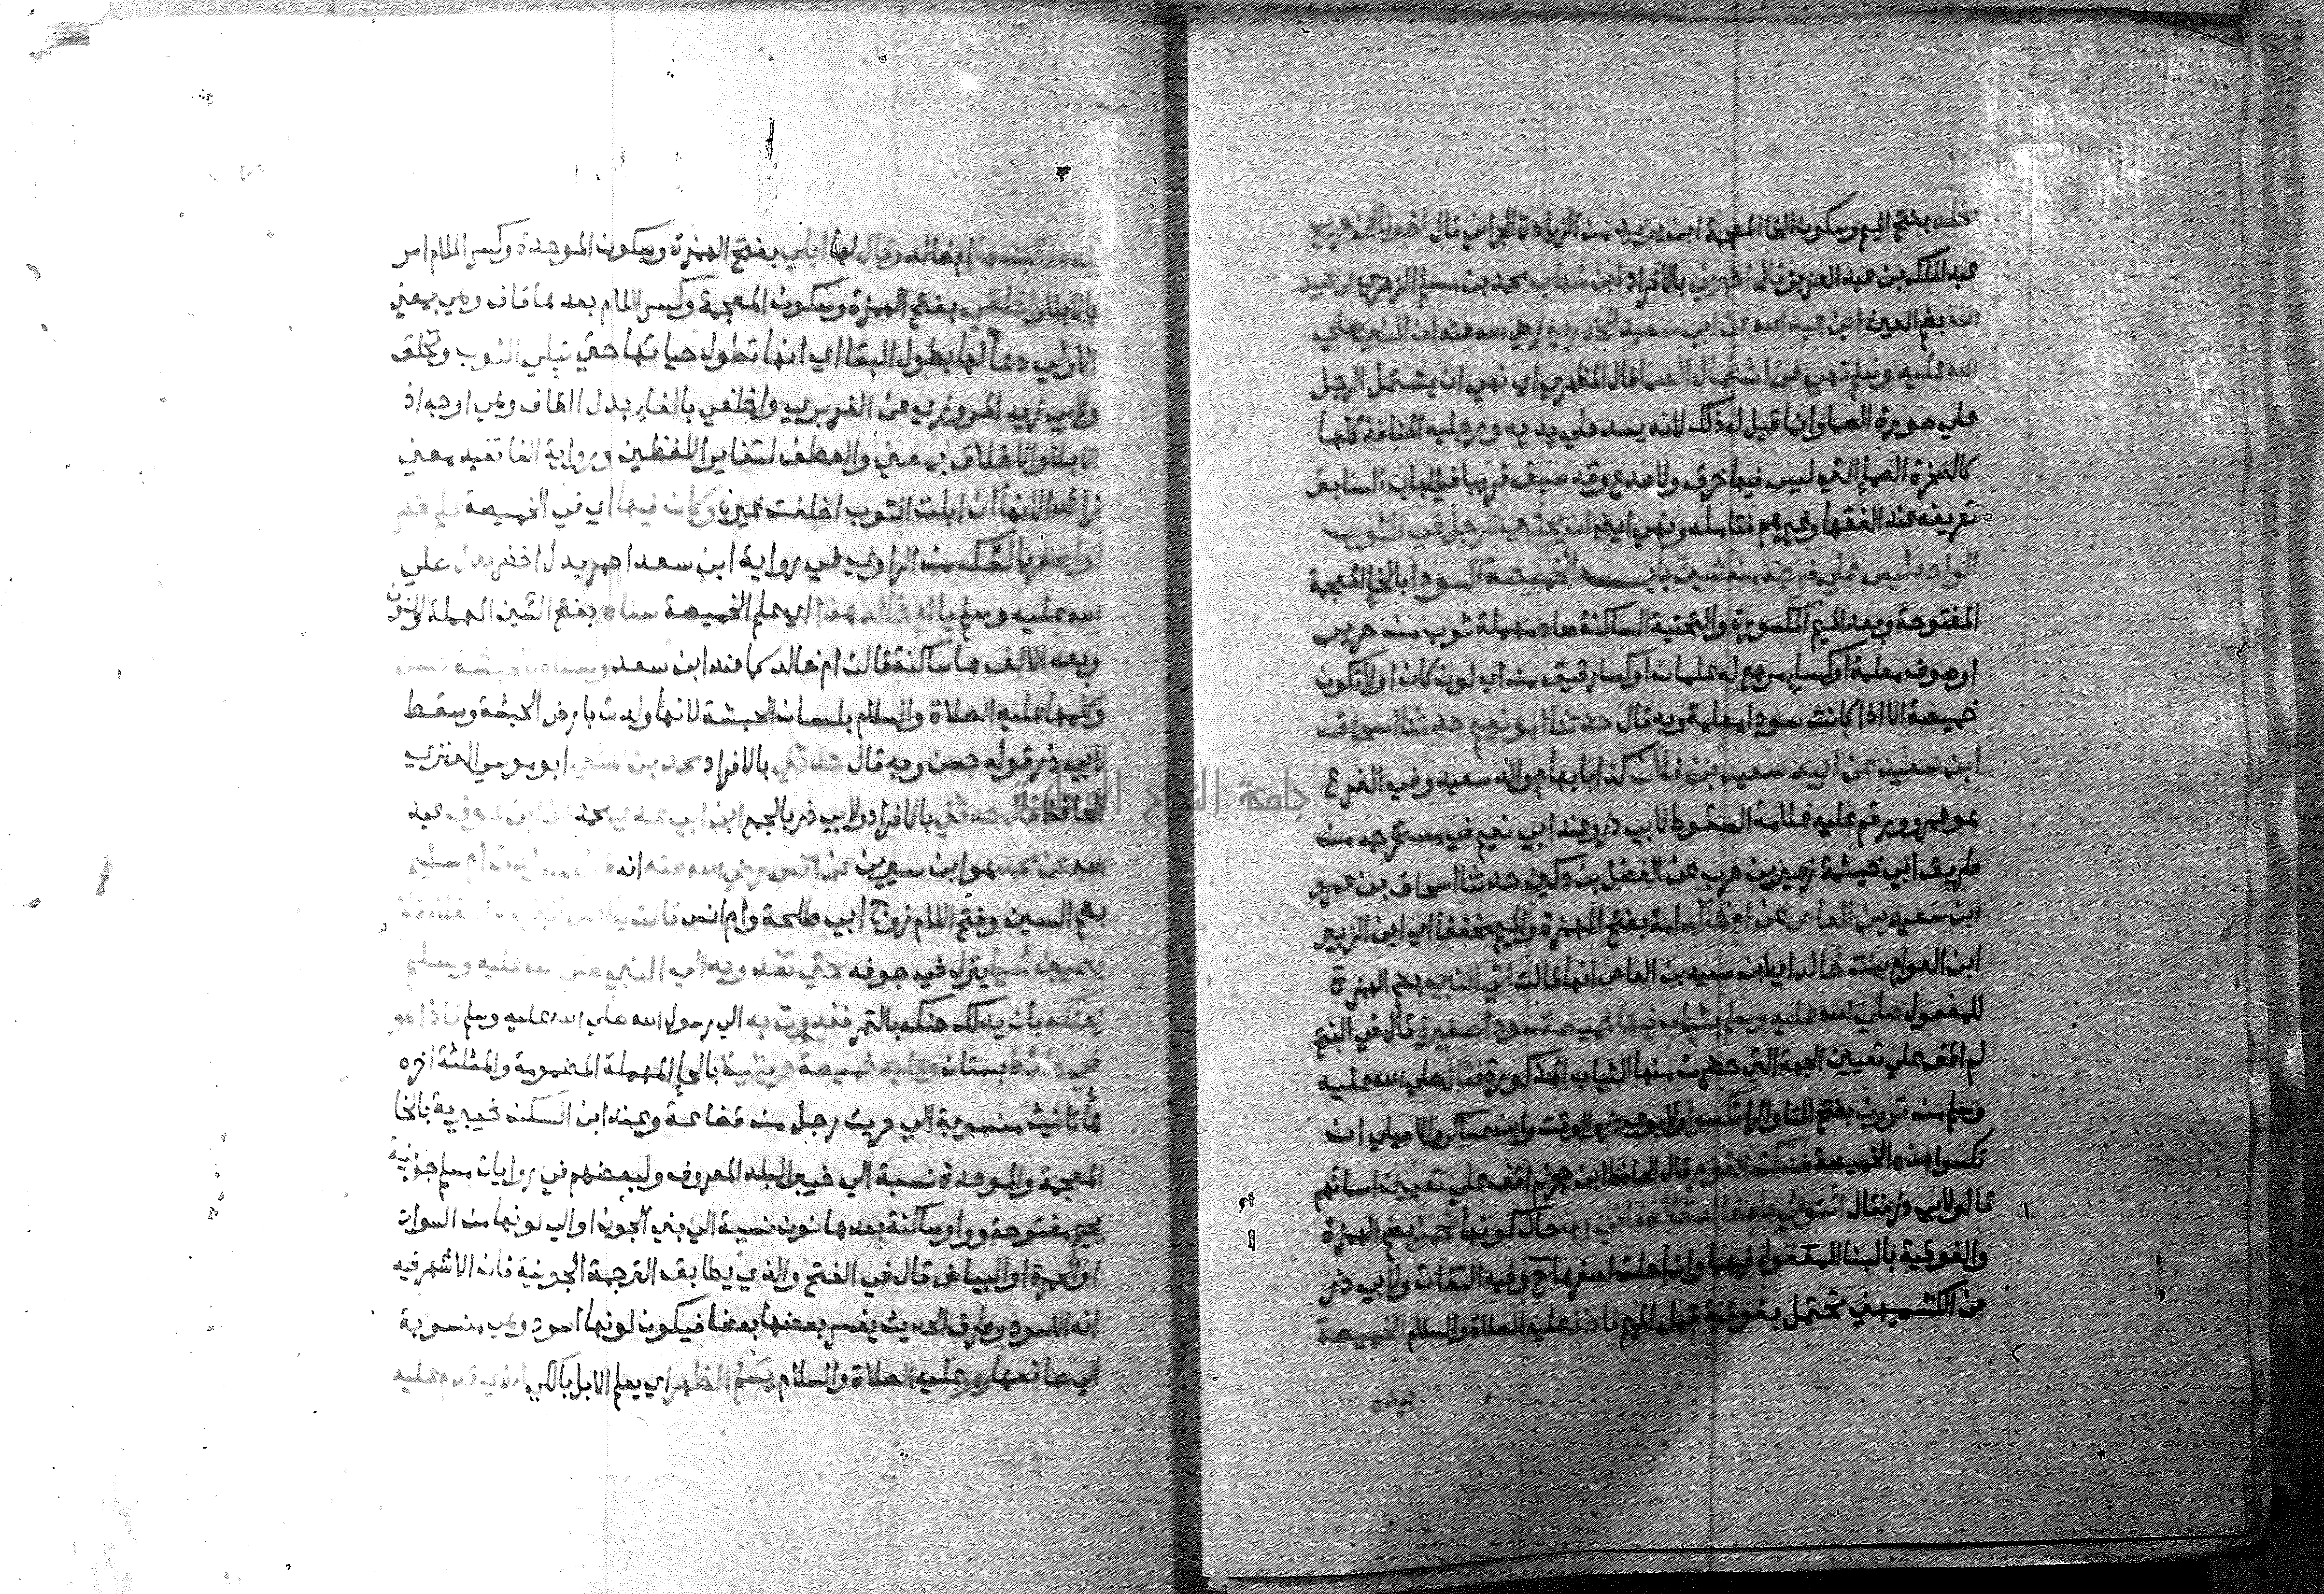 مخلد بفتح الميم وسكون الخا المعجمة ابن يزيد من الزيادة الحراني قال اخبرنا ابن جريج
عبد الملك بن عبد العزيز قال اخبرني بالافراد ابن شهاب محمد بن مسلم الزهري عن عبيد
الله بضم العين ابن عبد الله عن ابي سعيد الخدري رضي الله عنه ان النبي صلي
الله عليه وسلم نهي عن اشتمال الصما قال المظهري اي نهي ان يشتمل الرجل
علي صورة الصما وانما قيل له ذلك لانه يسد علي يديه ورجليه المنافذ كلها
كالصخرة الصما التي ليس فيها خرق ولا صدع وقد سبق قريبا في الباب السابق
تعريفه عند الفقها وغيرهم فتامله ونهي ايضا ان يحتبي الرجل في الثوب
الواحد ليس علي فرجه منه شي باب الخميصة السودا بالخا المعجمة
المفتوحة وبعد الميم المكسورة والتحتية الساكنة صاد مهملة ثوب من حرير
او صوف معلمة او كسا مربع له علمان او كسا رقيق من اي لون كان اولا تكون
خميصة الا اذا كانت سودا معلمة وبه قال حدثنا ابو نعيم حدثنا اسحاق
ابن سعيد عن ابيه سعيد بن فلان كذا بابهام والد سعيد وفي الفرع
هو عمرو ورقم عليه علامة السقوط لابي ذر وعند ابي نعيم في مستخرجه من
طريق ابي خيثمة زهير بن حرب عن الفضل بن دكين حدثنا اسحاق بن عمرو
ابن سعيد بن العاص عن ام خالد امة بفتح الهمزة والميم مخففا ابن الزبير
ابن العوام بنت خالد ابن سعيد بن العاص انها قالت اتي النبي بضم الهمزة
للمفعول صلي الله عليه وسلم بثياب فيها خميصة سودا صغيرة قال في الفتح
لم اقف علي تعيين الجهة التي حضرت منها الثياب المذكورة فقال صلي الله عليه
وسلم من ترون بفتح التا والرا نكسوا ولابوي ذر والوقت وابن عساكر والاصيلي ان
نكسوا هذه الخميصة فسكت القوم قال الحافظ ابن حجر لم اقف علي تعيين اسمائهم
قال ولابي ذر فقال ائتوني بام خالد فاتي بها حال كونها تحمل بضم الهمزة
والفوقية بالبنا للمفعول فيهما وانما حملت لصغرها ح وفيه التفات ولابي ذر
عن الكشميهني تحتمل بفوقية قبل الميم فاخذ عليه الصلاة والسلام الخميصة
بيده
بيده فالبسها ام خالد وقال لها ابلي بفتح الهمزة وسكون الموحدة وكسر اللام امر
بالابلا واخلقي بفتح الهمزة وسكون المعجمة وكسر اللام بعدها قاف وهي بمعني
الاولي دعا لها بطول البقا اي انها تطول حياتها حتي تبلي الثوب وتخلق
ولابي زيد المروزي عن الفربري واخلفي بالفا بدل القاف وهي اوجه اذ
الابلا والاخلاق بمعني والعطف لتغاير اللفظين ورواية الفا تفيد معني
زائدا لانها ان ابلت الثوب اخلفت غيره وكان فيها اي في الخميصة علم اخضر
او اصفر بالشك من الراوي في رواية ابن سعد احمر بدل اخضر علي
الله عليه وسلم يا ام خالد هذا اي علم الخميصة سناه بفتح السين المهملة والنون
وبعد الالف ها ساكنة قالت ام خالد كما عند ابن سعد وسناه بالحبشية حسن
وكلمها عليه الصلاة والسلام بلسان الحبشة لانها ولدت بارض الحبشة وسقط
لابي ذر قوله حسن وبه قال حدثني بالافراد محمد بن مثني ابو موسي العنزي
الحافظ قال حدثني بالافراد ولابي ذر بالجمع ابن ابي عدي محمد عن ابن عون عبد
الله عن محمد هو ابن سيرين عن انس رضي الله عنه انه قال لما ولدت ام سليم
بضم السين وفتح اللام زوج ابي طلحة وام انس قالت يا انس انظر هذا الغلام فلا
يصيبن شيا ينزل في جوفه حتي تغدو به الي النبي صلي الله عليه وسلم
يحنكه بان يدلك حنكه بالتمر فغدوت به الي رسول الله صلي الله عليه وسلم فاذا هو
في حائط بستان وعليه خميصة حريثية بالحا المهملة المضمومة والمثلثة اخره
ها تانيث منسوبة الي حريث رجل من قضاعة وعند ابن السكن خيبرية بالخا
المعجمة والموحدة نسبة الي خيبر البلد المعروف ولبعضهم في روايات مسلم جونية
بجيم مفتوحة وواو ساكنة بعدها نون نسبة الي بني الجون او الي لونها من السواد
او الحمرة او البياض قال في الفتح والذي يطابق الترجمة الجونية فان الاشهر فيه
انه الاسود وطرق الحديث يفسر بعضها بعضا فيكون لونها اسود وهي منسوبة
الي صانعها وهو عليه الصلاة والسلام يسم الظهر اي يعلم الابل بالكي الذي قدم عليه